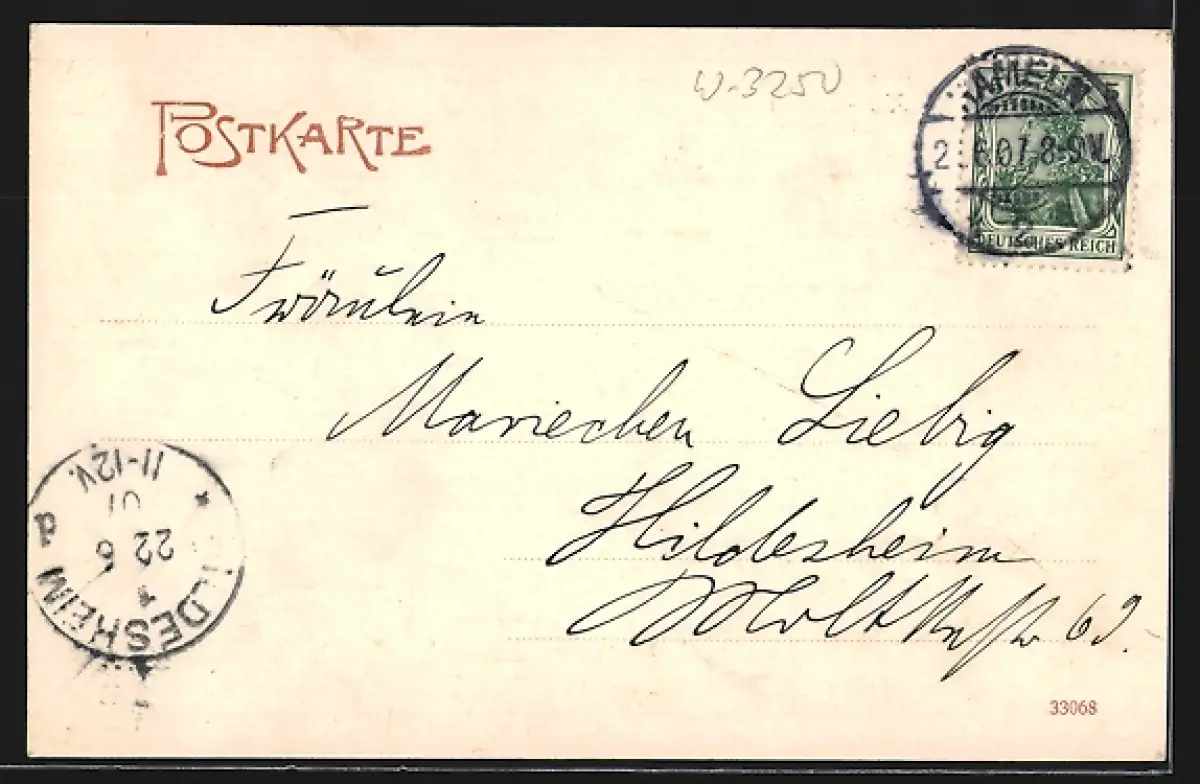 W-3250
POSTKARTE
HAMELN
6.07.8-9V.
2
5
DEUTSCHES REICH
Fräulein
Mariechen Liebig
Hildesheim
Moltkestr 69.
HILDESHEIM
1
22 6
07
11-12V.
33068